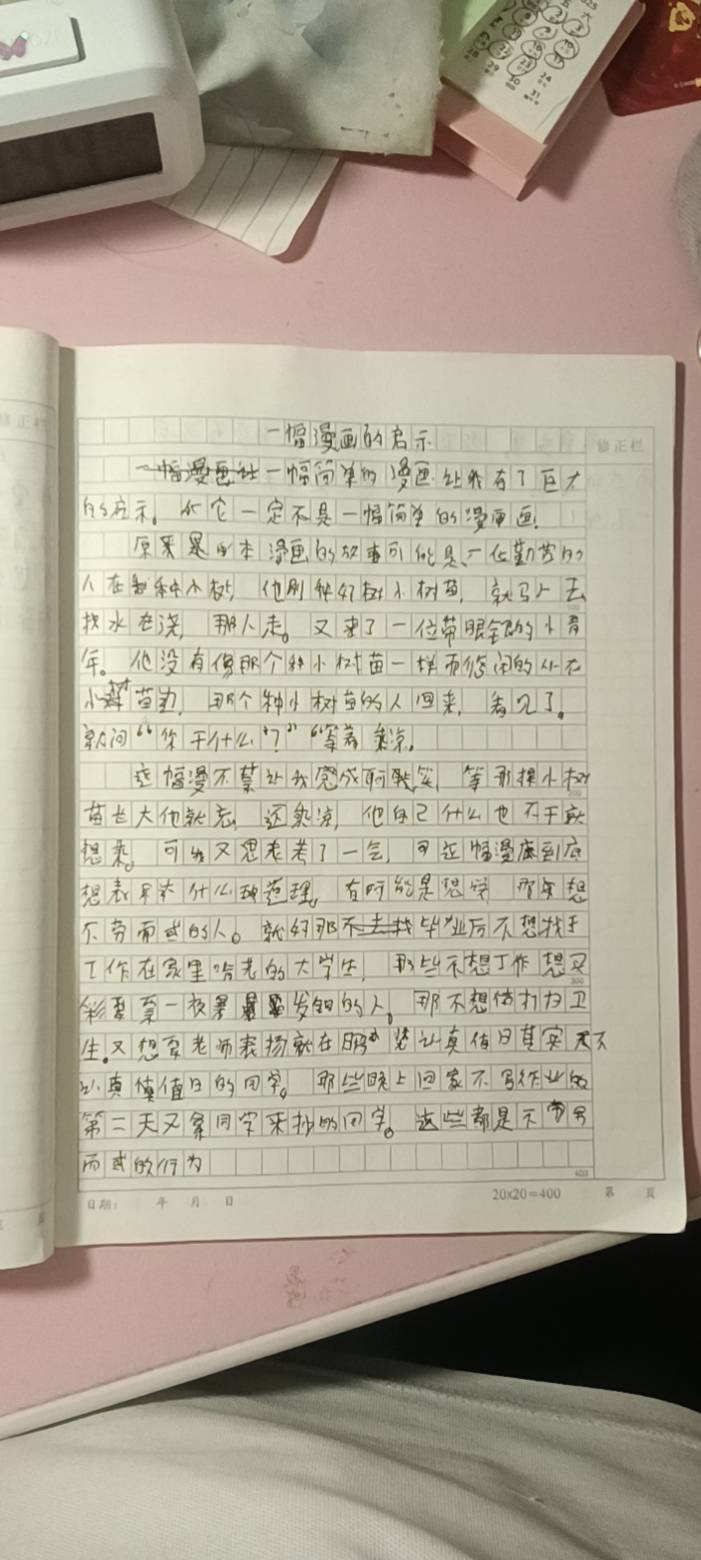 修正栏
一幅漫画的启示
一幅简单的漫画让我有了巨大
的启示。它一定不是一幅简单的漫画.
原来是本漫画的故事可能是、一位勤劳的
人在种小树, 他刚种好树小树苗, 就马上去
找水在浇, 那人走。又来了一位带眼全的小青
年。他没有像那个种小树苗一样而悠闲的坐在
小树苗边, 那个种小树苗的人回来, 看见了。
就问“你干什么?”“等着乘凉.
这幅漫不禁让我觉成可笑, 等那棵小树
苗长大他就老, 还乘凉, 他自己什么也不干就
想乘。可我又思考了一会, 可这幅漫底到底
想表什么理道理。有可能是想 那
不劳而或的人。就好那毕业后不想找
工作在家里啃老的大学生, 那些不想工作想买
彩票一夜的人。那不想做打扫卫
生.又想要老师表扬就在 装认真值日其实
认真值日的同学。那些晚上回家不写作业的
第二天又拿同学来抄的同学。这些都是不劳
而或的行为
日期: 年 月 日
20x20=400
第 頁